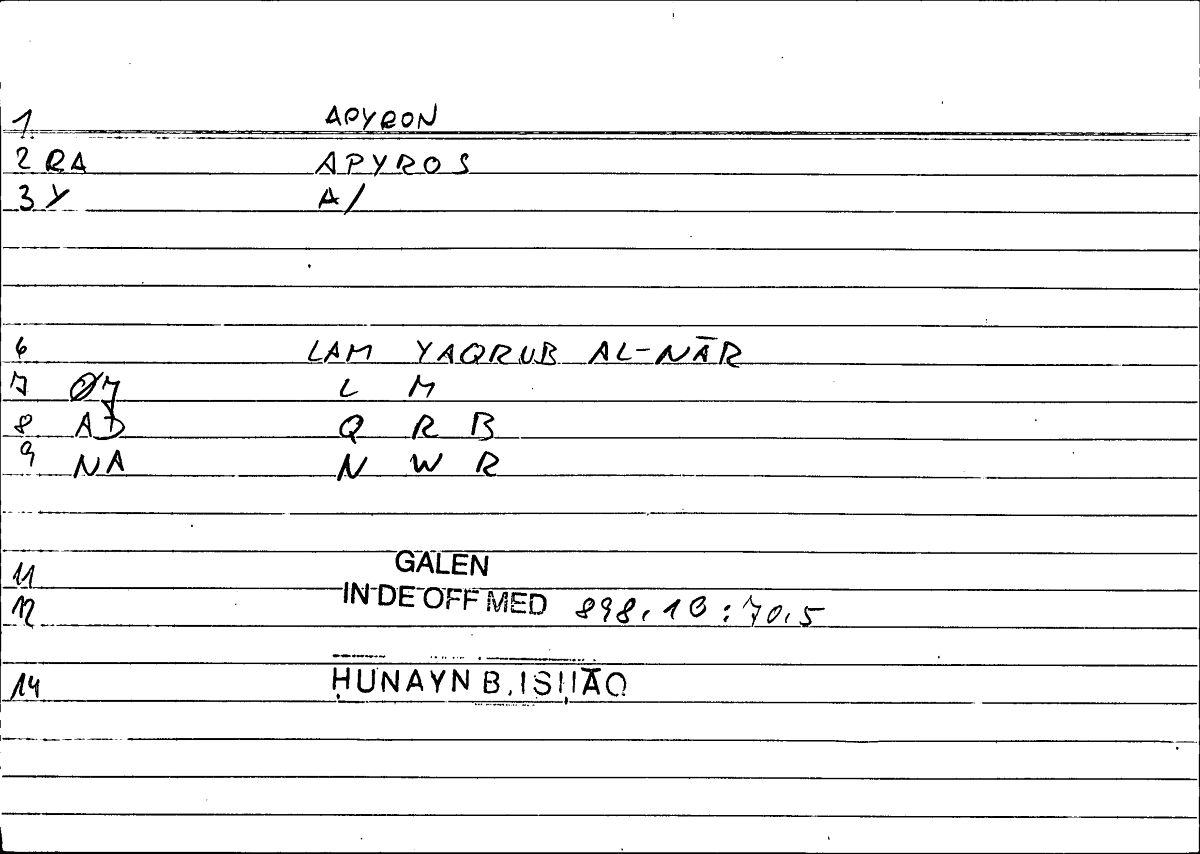 1 APYRON
2 RA APYROS
3 Y A/
6 LAM YAQRUB AL-NĀR
7 Ø7 L M
8 AD Q R B
9 NA N W R
11 GALEN
12 IN DE OFF MED 898.10:70.5
14 ḤUNAYN B. ISḤĀQ